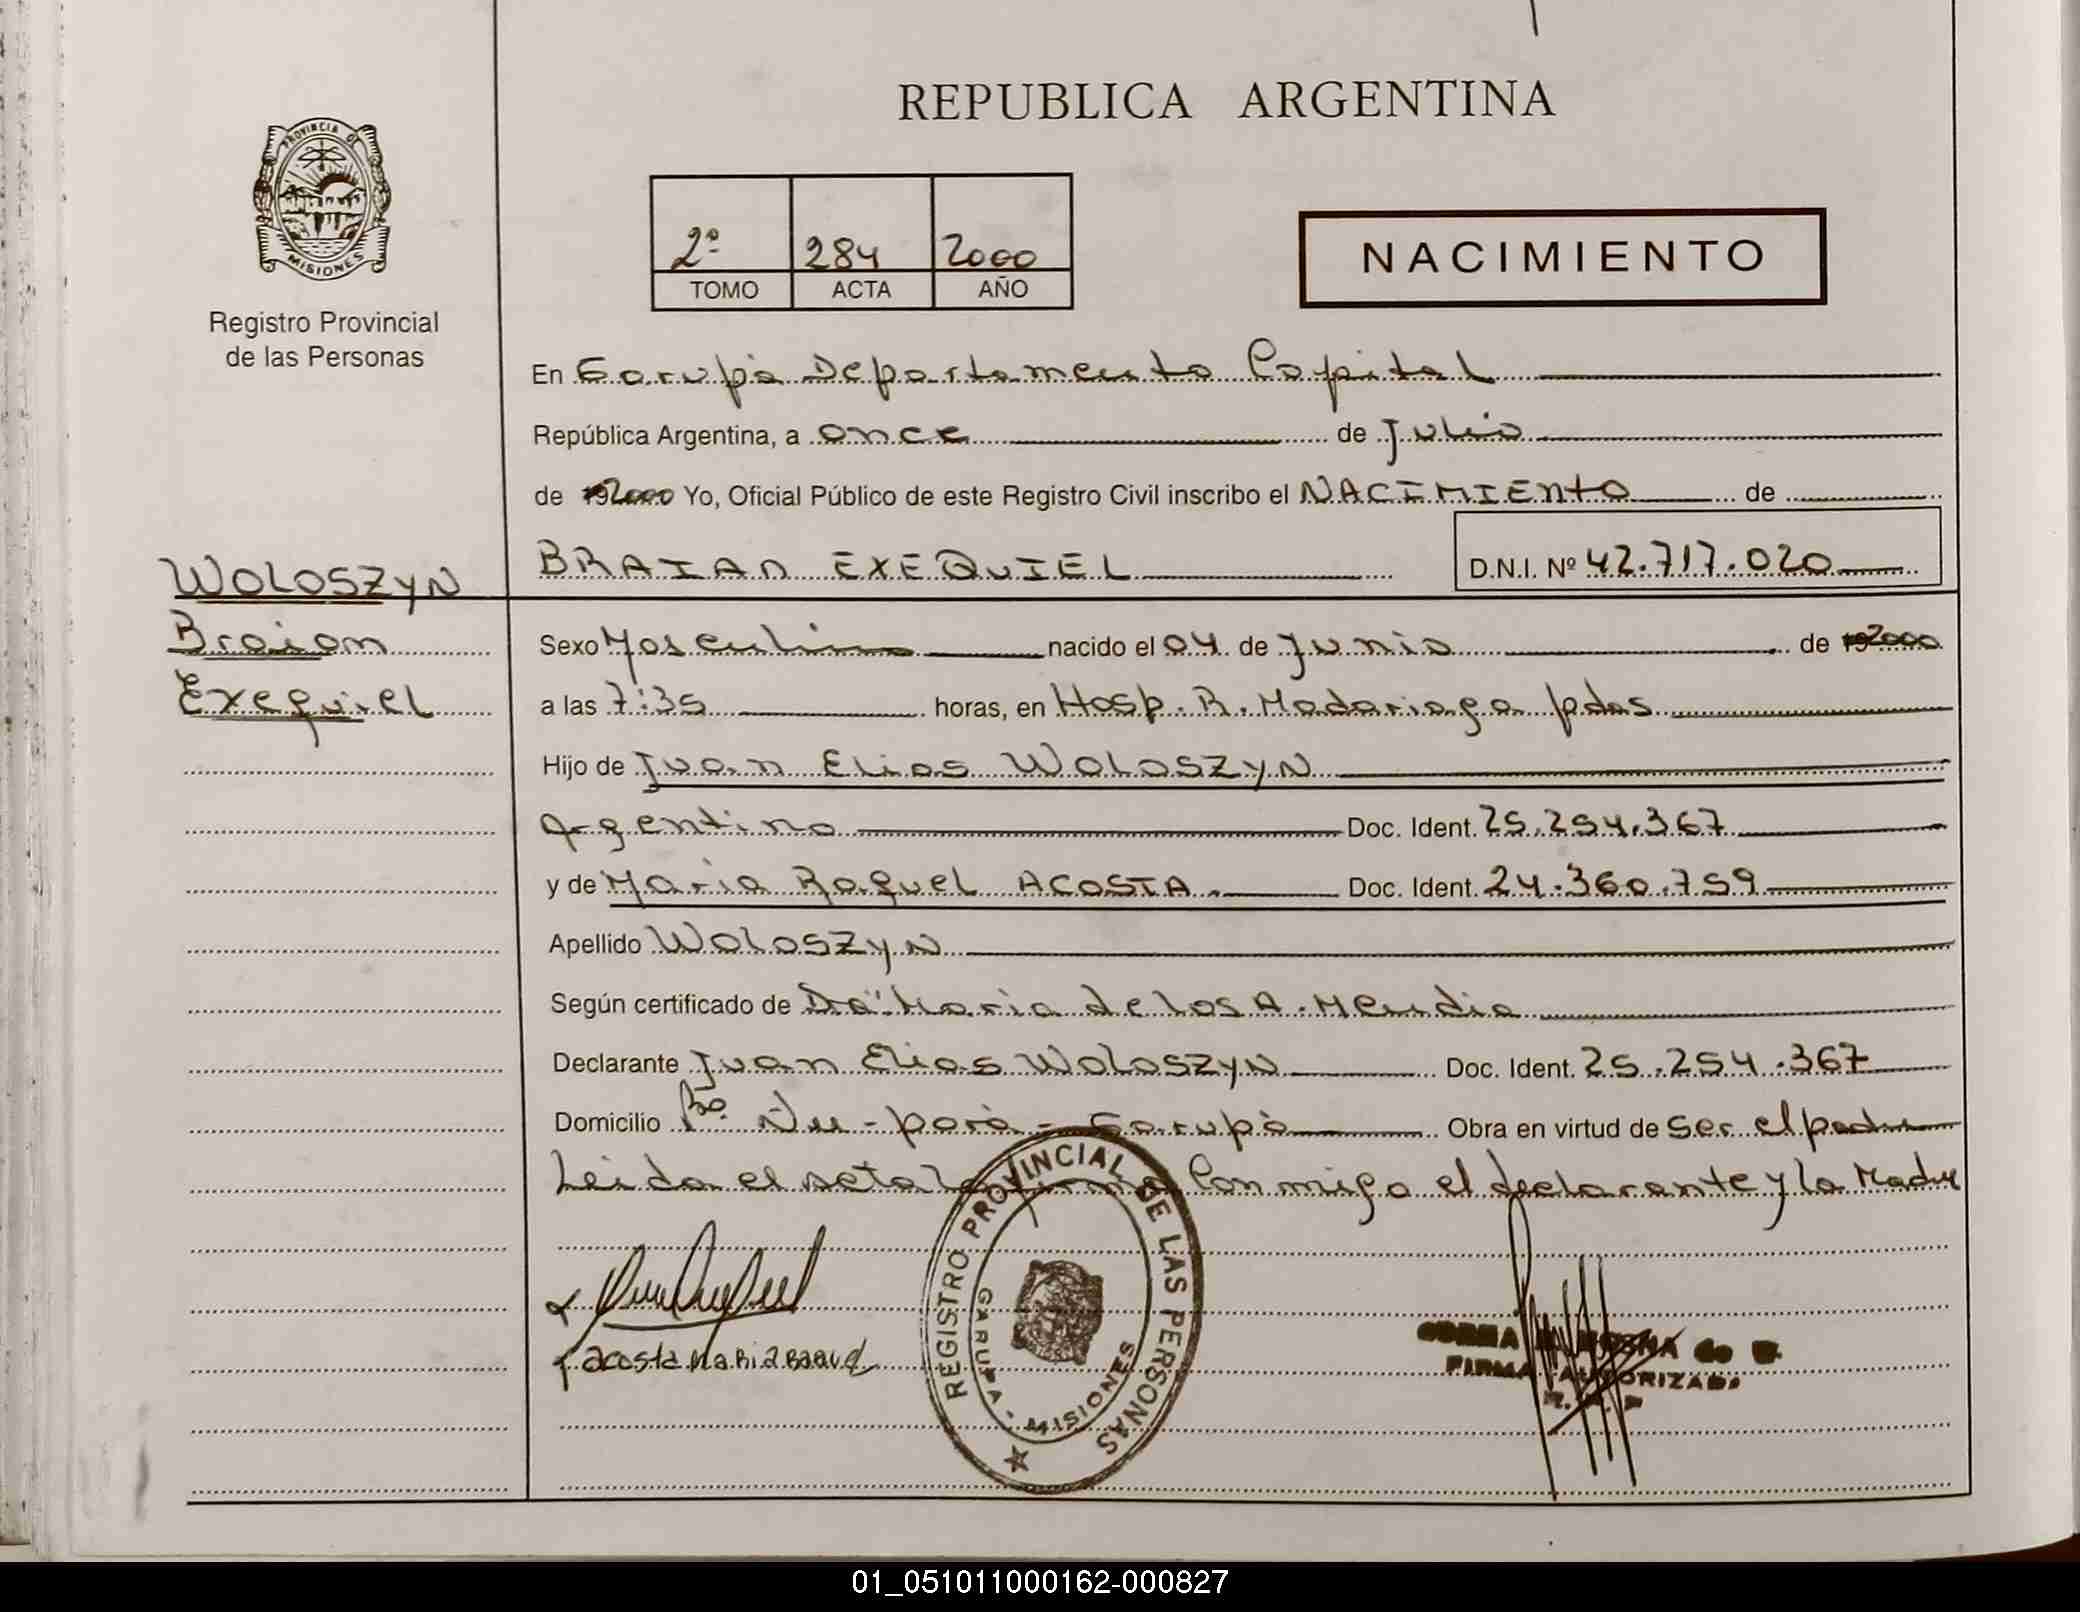 REPUBLICA ARGENTINA
PROVINCIA DE
MISIONES
Registro Provincial
de las Personas
2º 284 2000
TOMO ACTA AÑO
NACIMIENTO
En Garupá Departamento Capital
República Argentina, a once de Julio
de 2000 Yo, Oficial Público de este Registro Civil inscribo el NACIMIENTO de
BRAIAN EXEQUIEL D.N.I. Nº 42.717.020
WOLOSZYN
Braian
Exequiel
Sexo Masculino nacido el 04 de Junio de 2000
a las 7:35 horas, en Hosp. R. Madariaga pdas
Hijo de Juan Elias WOLOSZYN
Argentino Doc. Ident. 25.254.367
y de Maria Raquel ACOSTA. Doc. Ident. 24.360.759
Apellido WOLOSZYN
Según certificado de Dra Maria de los A. Mendia
Declarante Juan Elias WOLOSZYN Doc. Ident. 25.254.367
Domicilio Bº Ñu-porá - Garupá Obra en virtud de ser el padre
Leida el acta la firma Conmigo el declarante y la Madre
acosta Maria Raquel
REGISTRO PROVINCIAL DE LAS PERSONAS
GARUPA - MISIONES
de
FIRMA AUTORIZADA
01_051011000162-000827